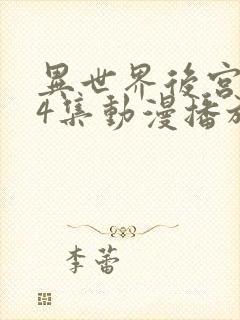 異世界後宮
4集動漫播放
李蕾